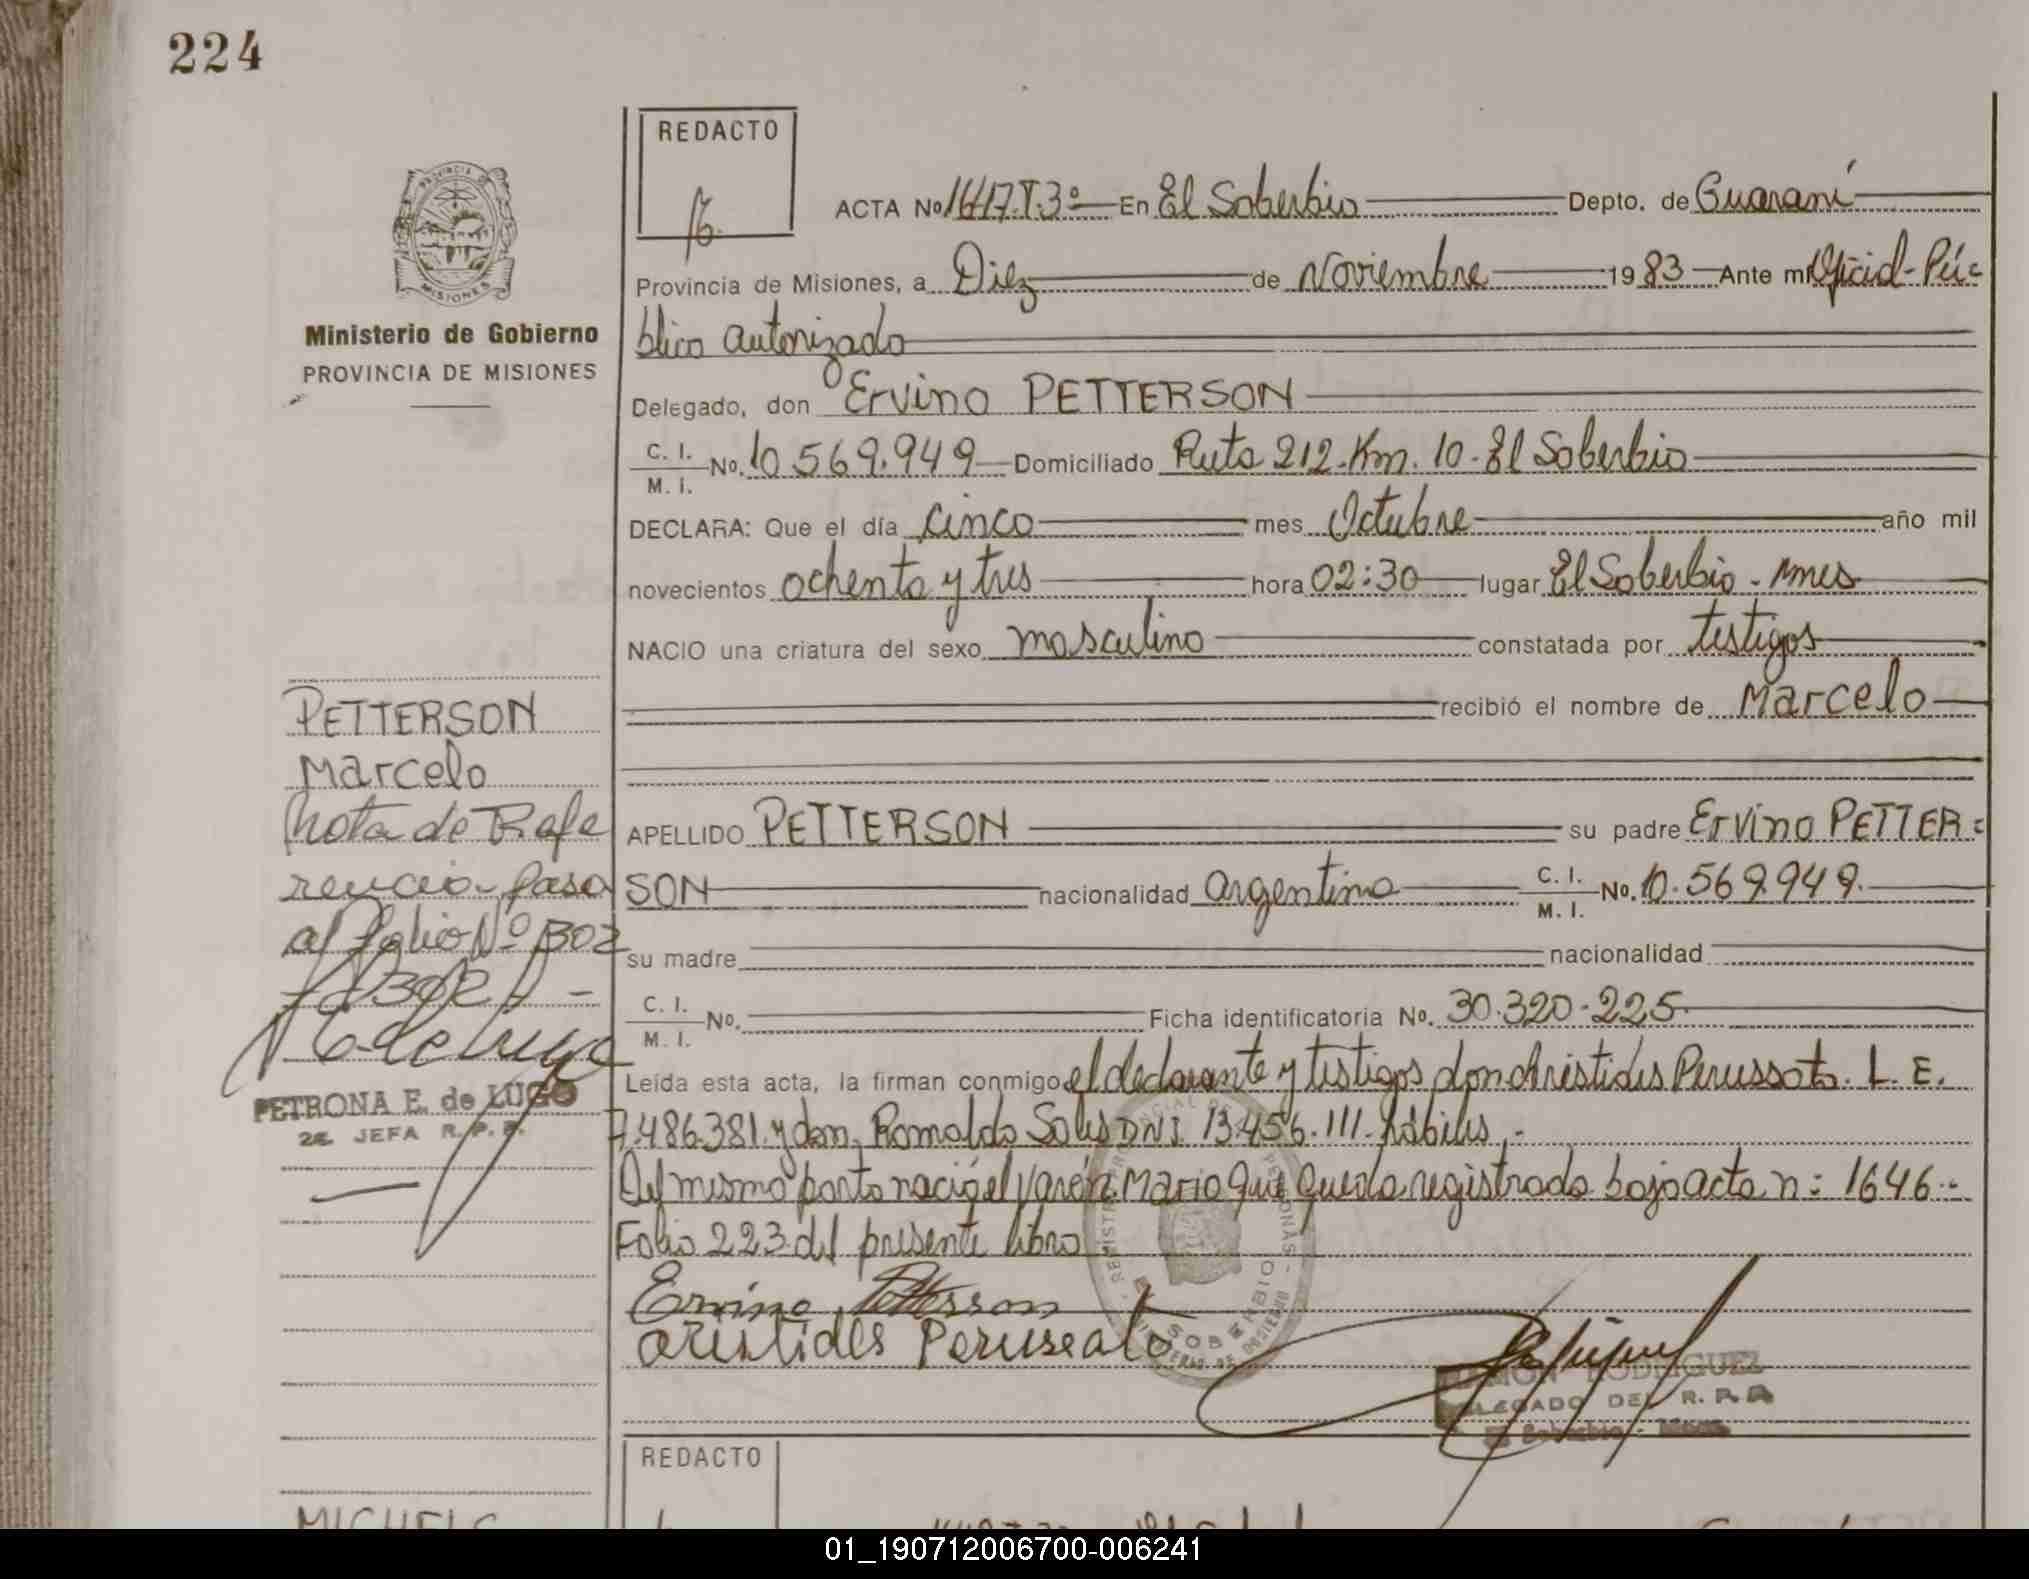 224
REDACTO
ACTA No 1647.T.3º En El Soberbio Depto. de Guaraní
Provincia de Misiones, a Diez de Noviembre 1983 Ante mi Oficial-Pú=
blico autorizado
Ministerio de Gobierno
PROVINCIA DE MISIONES
Delegado, don Ervino PETTERSON
C. I.
M. I. No. 10.569.949 Domiciliado Ruta 212.Km. 10-El Soberbio
DECLARA: Que el día cinco mes Octubre año mil
novecientos ochenta y tres hora 02:30 lugar El Soberbio - Mnes
NACIO una criatura del sexo masculino constatada por testigos
recibió el nombre de Marcelo
PETTERSON
Marcelo
Nota de Refe
rencia-pasa
al folio Nº 302
APELLIDO PETTERSON su padre Ervino PETTER=
SON nacionalidad argentina C. I.
M. I. No. 10.569.949.
su madre nacionalidad
C. I.
M. I. No. Ficha identificatoria No. 30.320-225
Leída esta acta, la firman conmigo el declarante y testigos don Aristides Perussato. L. E.
7.486.381.y don, Romaldo Solis DNI 13.456.111.hábiles.-
Del mismo parto nació el varón Mario que queda registrado bajo acta n: 1646.-
Folio 223 del presente libro
PETRONA E. de LUGO
2ª JEFA R. P. P.
Ervino Petterson
aristides Perussato
PROVINCIAL DE
PERSONAS
SOBERBIO
RAMON RODRIGUEZ
DELEGADO DEL R. P. P.
El Soberbio - Mnes
REDACTO
MICHELS
01_190712006700-006241